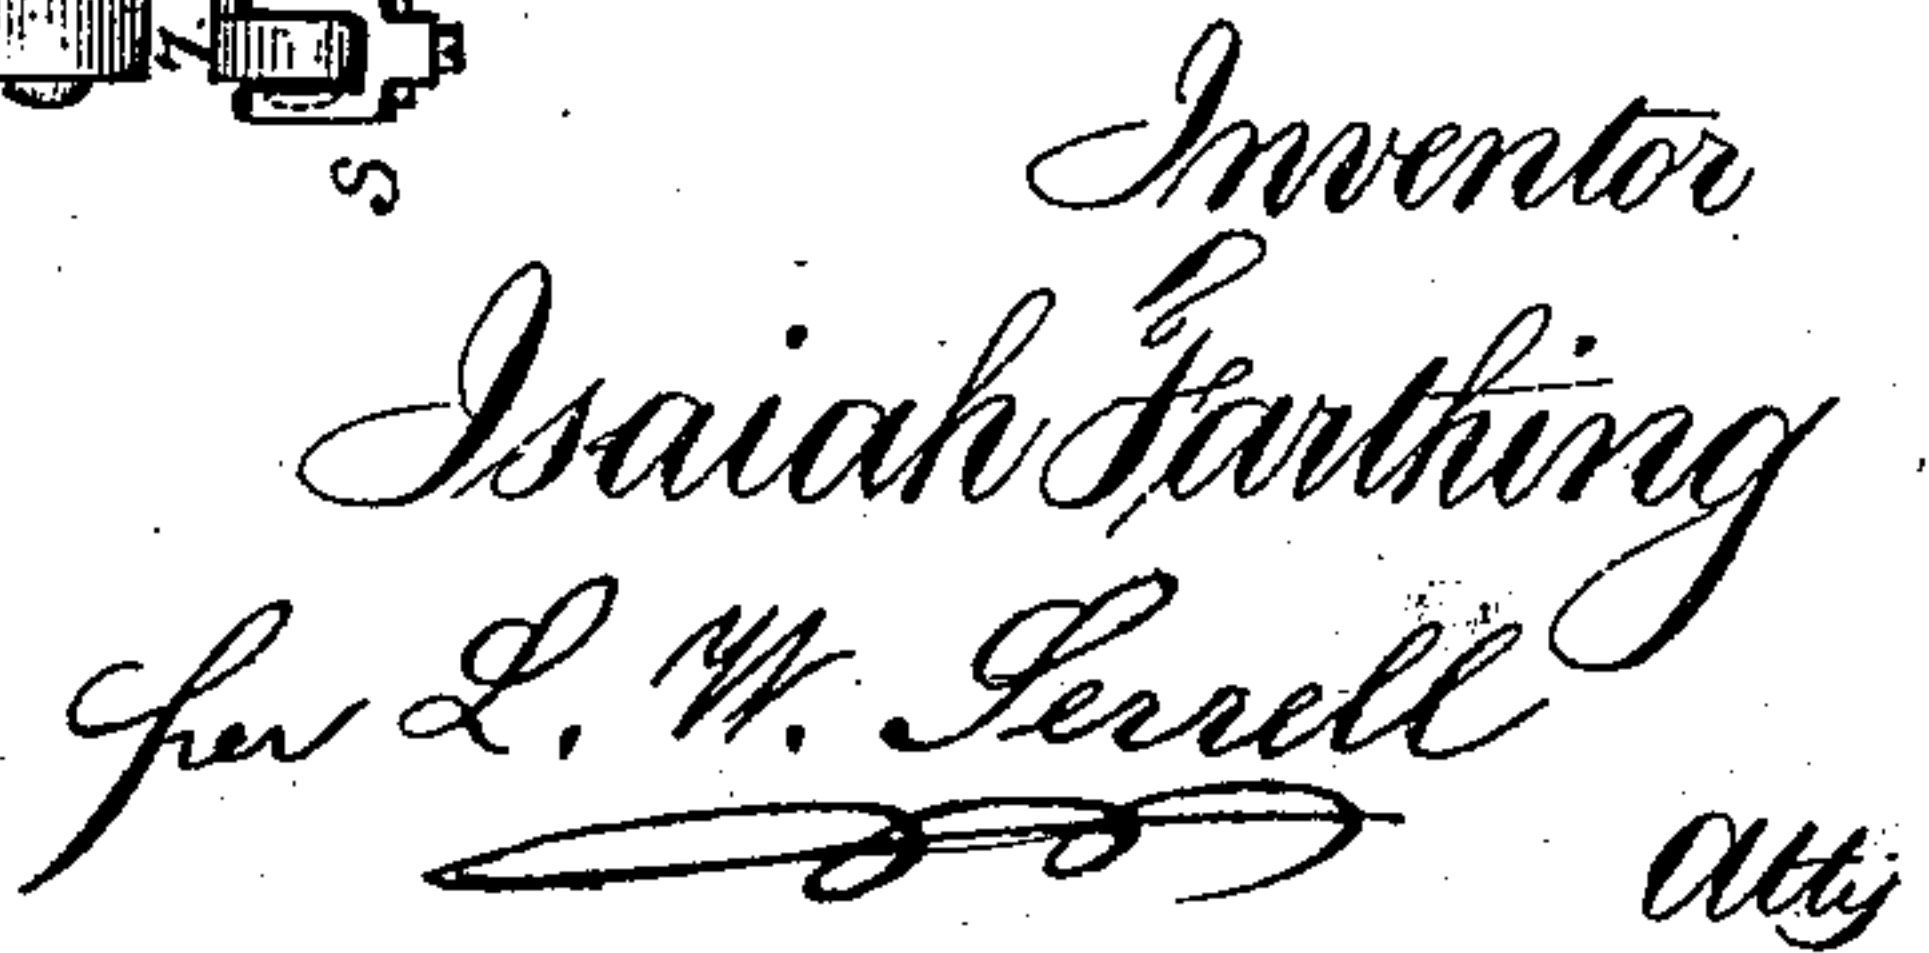 7.
S
Inventor
Isaiah Farthing
per L. W. Serrell
Atty